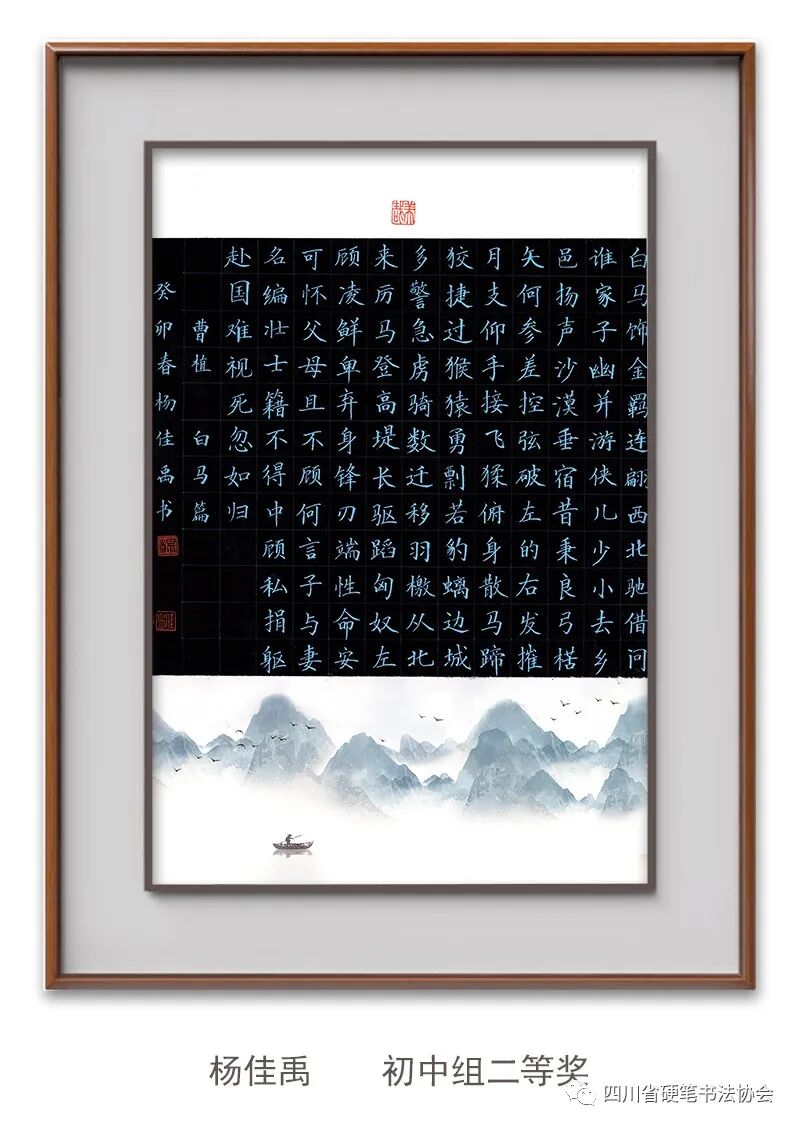 白马饰金羁连翩西北驰借问
谁家子幽并游侠儿少小去乡
邑扬声沙漠垂宿昔秉良弓楛
矢何参差控弦破左的右发摧
月支仰手接飞猱俯身散马蹄
狡捷过猴猿勇剽若豹螭边城
多警急虏骑数迁移羽檄从北
来厉马登高堤长驱蹈匈奴左
顾凌鲜卑弃身锋刃端性命安
可怀父母且不顾何言子与妻
名编壮士籍不得中顾私捐躯
赴国难视死忽如归
曹植 白马篇
癸卯春杨佳禹书
杨佳禹 初中组二等奖
四川省硬笔书法协会